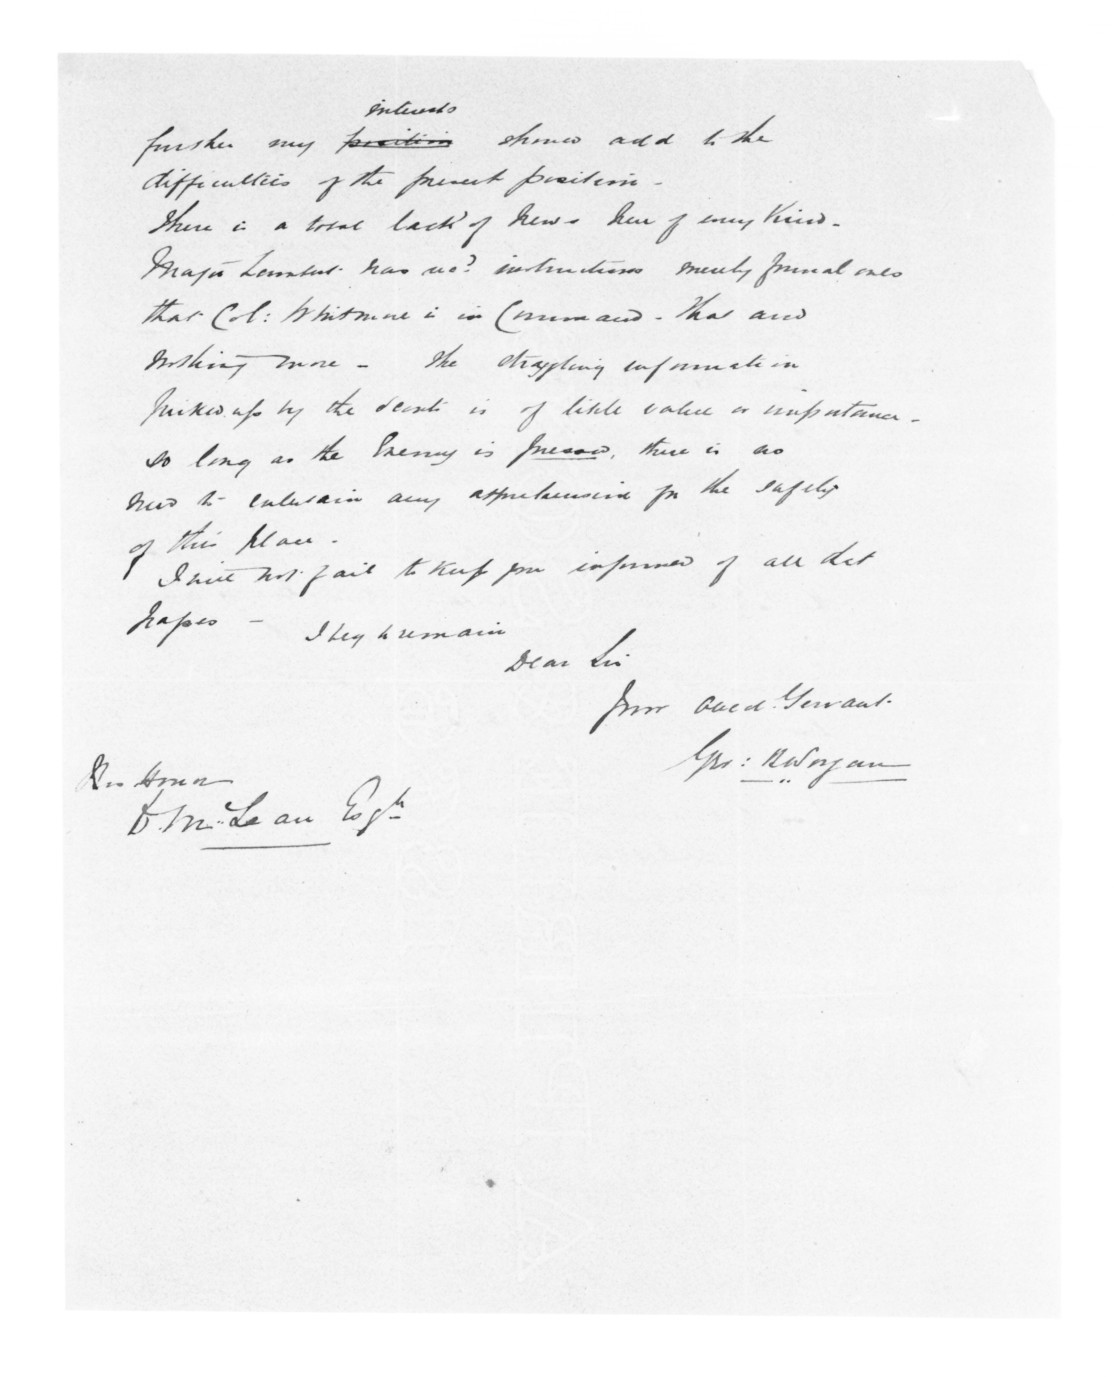 interests
further my position should add to the
difficulties of the present position -
There is a total lack of News here of every Kind -
Major Lambert has recd instructions merely formal ones
that Col: Whitmore is in Command - that and
nothing more - The straggling information
picked up by the scouts is of little value or importance -
So long as the Enemy is pressed, there is no
need to entertain any apprehension for the safety
of this place -
I will not fail to keep you informed of all that
passes -
I beg to remain
Dear Sir
Your Obed. Servant
Geo: B Worgan
His Honor
D. McLean Esqre